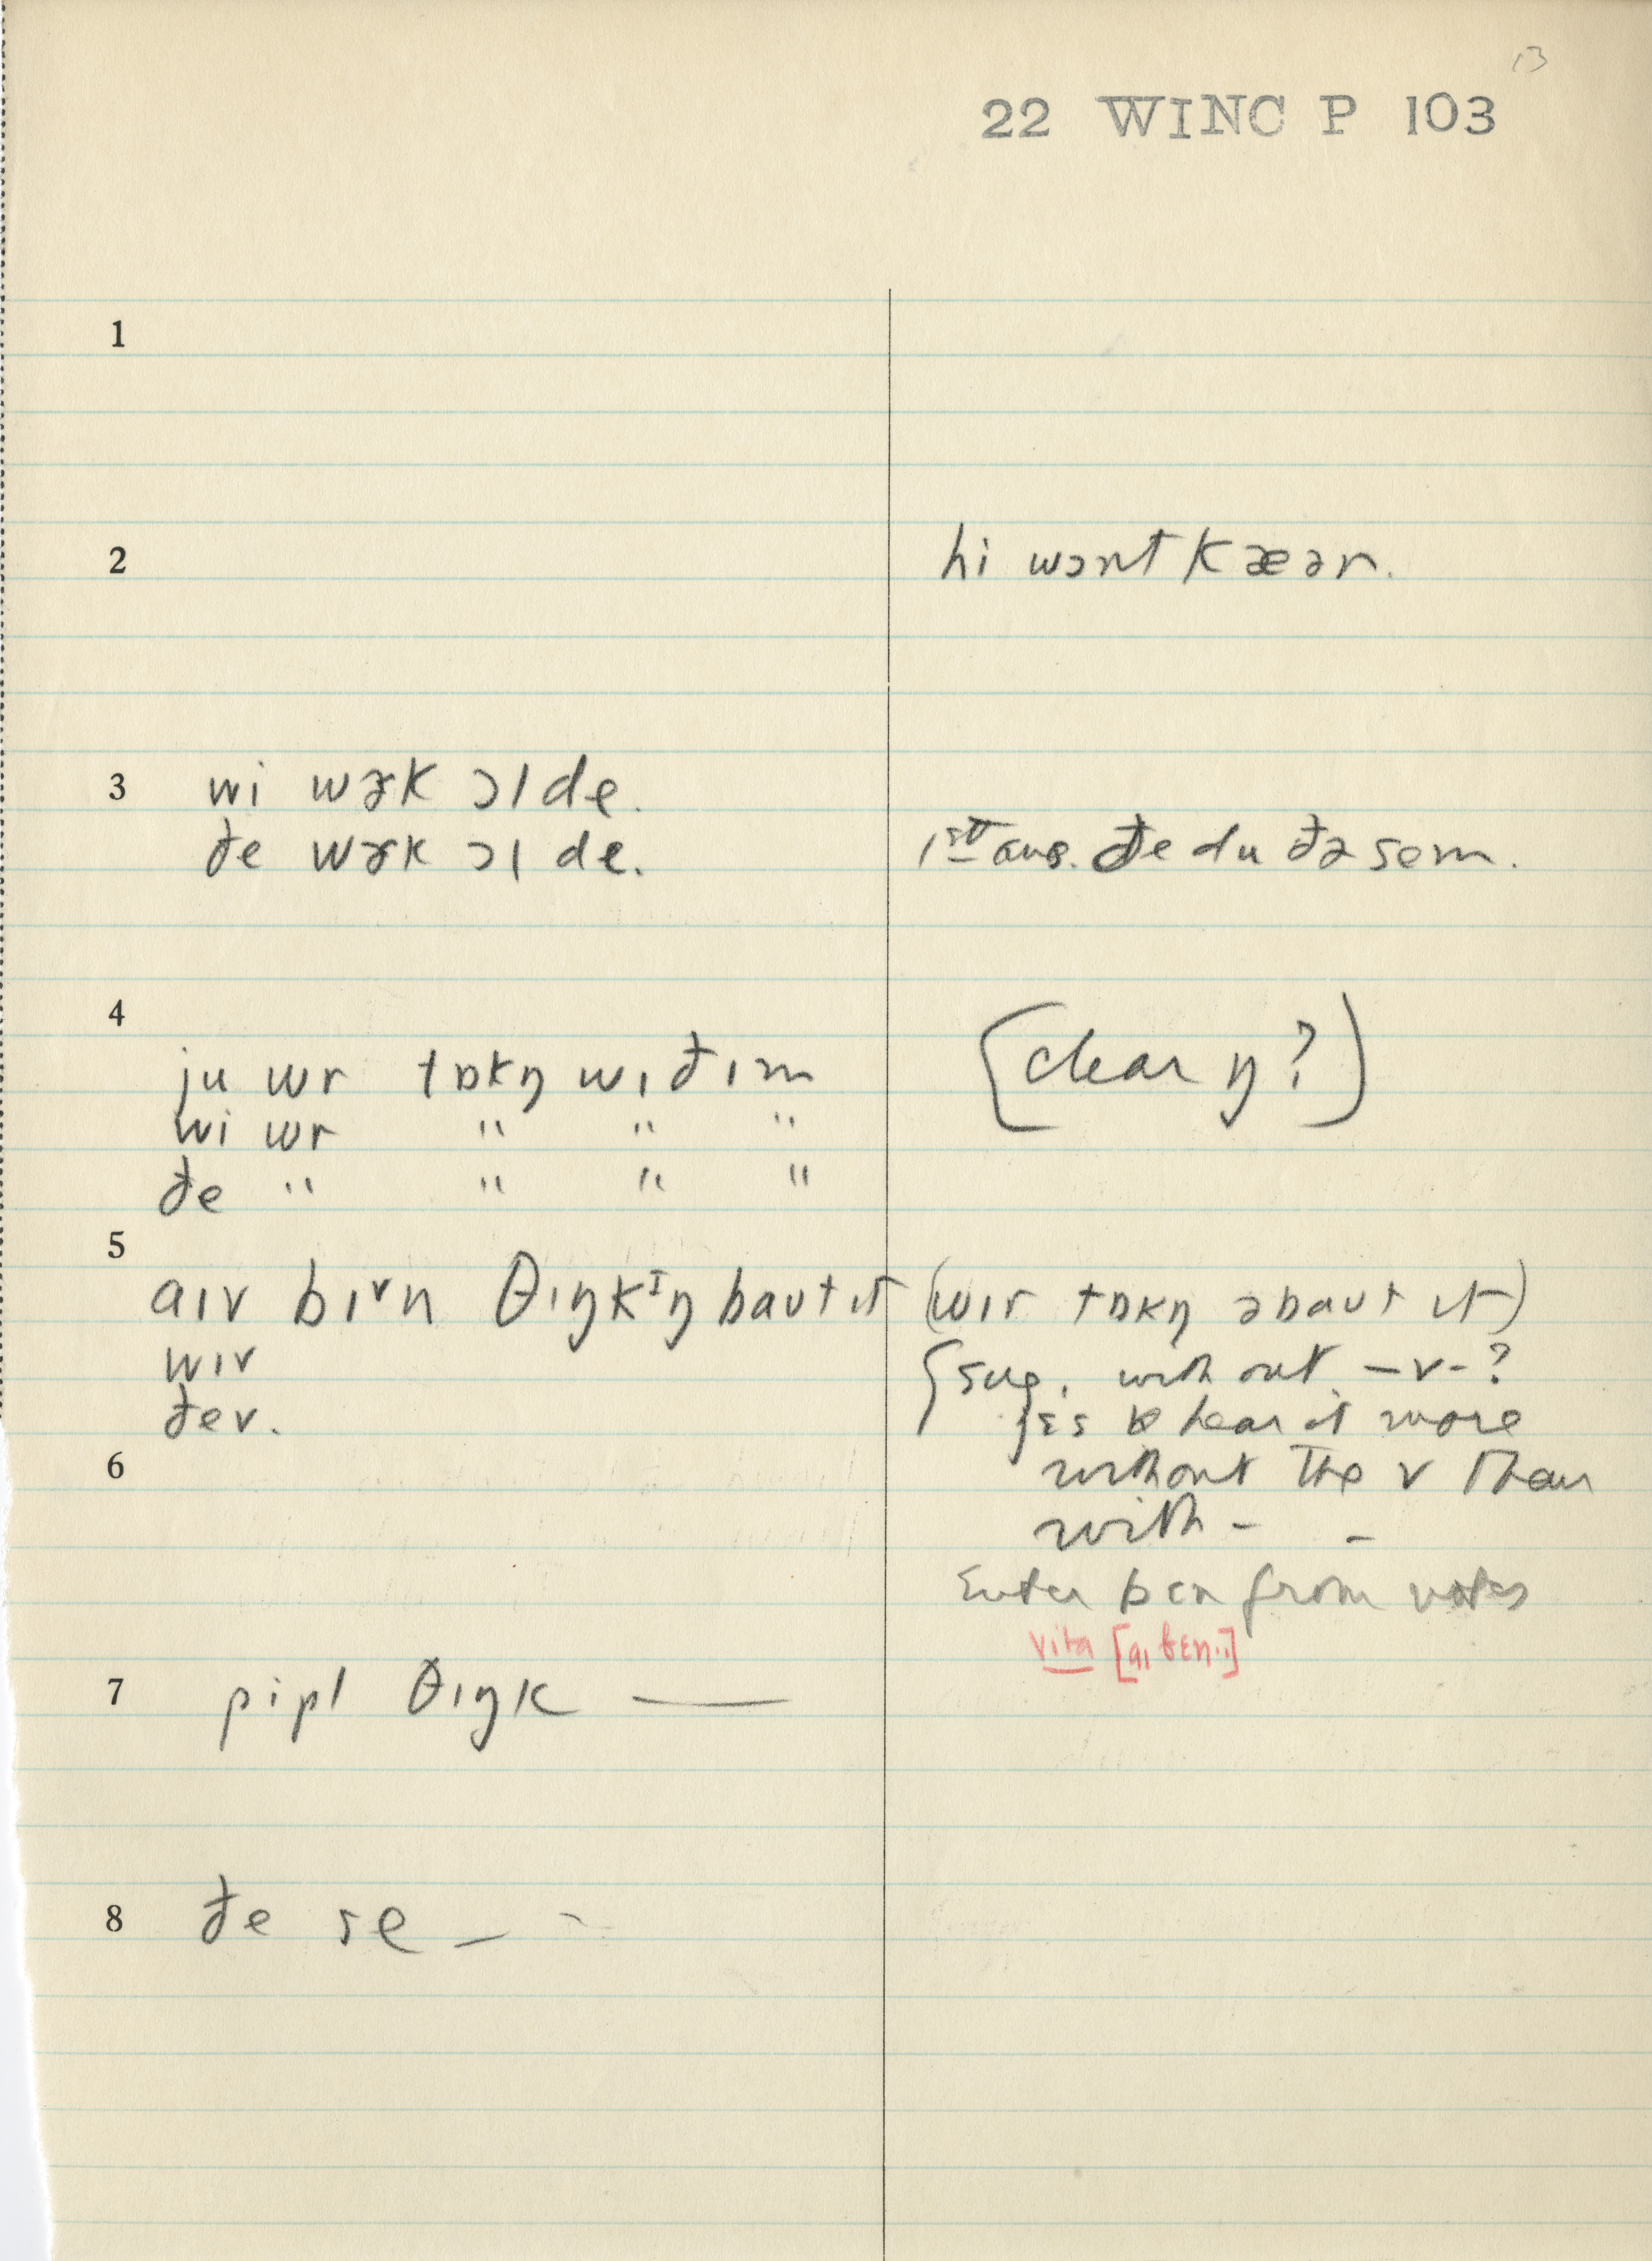 13
22 WINC P 103
1
2 hi wɔnt kæər.
3 wi wɚk ɔl de.
ðe wɚk ɔl de. 1st aus. ðe du ðə sem.
4
ju wr tɒkŋ wɪðɪm [clear ŋ?]
wi wr " " "
ðe " " " "
5
aɪv bɪvn θɪŋkɪŋ baʊt ɪt (wɪr tɒkŋ əbaʊt ɪt)
wɪv {sug. without -v-?
ðev. jɛs hear it more
6 without the v than
with - -
Enter bɛn from notes
vita [aɪ bɛn..]
7 pipl θɪŋk —
8 ðe se –